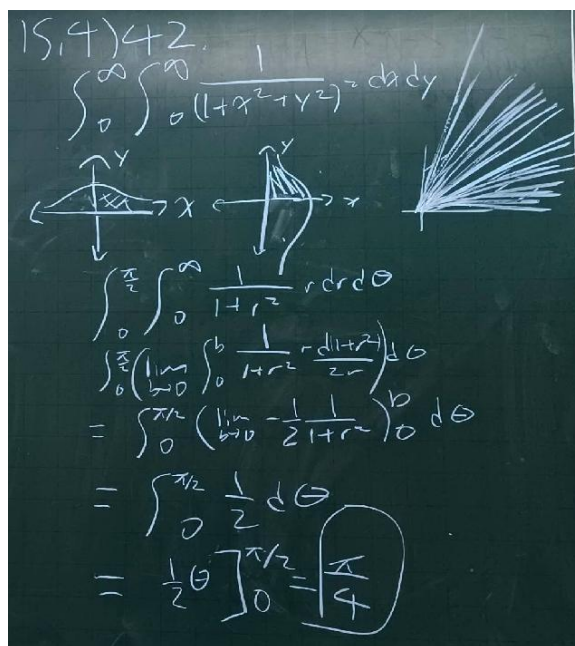 15.4) 42.
∫₀^∞ ∫₀^∞ 1/(1+x²+y²)² dx dy
y
x
y
x
∫₀^(π/2) ∫₀^∞ 1/(1+r²) r dr dθ
∫₀^(π/2) (lim b→0 ∫₀^b 1/(1+r²) r d(1+r²)/2r) dθ
= ∫₀^(π/2) (lim b→0 -1/2 1/(1+r²))₀^b dθ
= ∫₀^(π/2) 1/2 dθ
= 1/2 θ]₀^(π/2) = π/4